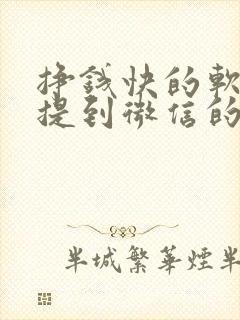 挣錢快的軟
提到微信的
半城繁華煙半